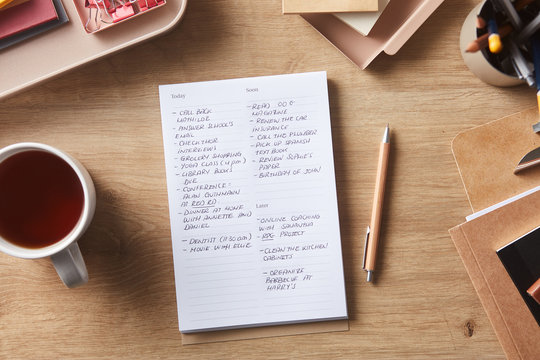 Today
- CALL BACK
MATHILDE
- ANSWER SCHOOL'S
EMAIL
- CHECK THOR
INTERVIEWS
- GROCERY SHOPPING
- YOGA CLASS (4 pm)
- LIBRARY BOOKS
DUE
- CONFERENCE:
ALAN GUINNAMON
AT
- DINNER AT HOME
WITH ANNETTE AND
DANIEL
- DENTIST (11:30 am)
- MOVIE WITH ELLIE
Soon
- READ
MAGAZINE
- RENEW THE CAR
INSURANCE
- CALL THE PLUMBER
- PICK UP SPANISH
TEXT BOOK
- REVIEW SOPHIE'S
PAPER
- BIRTHDAY OF JOHN
Later
- ONLINE COACHING
WITH SAMANTHA
- RPG PROJECT
- CLEAN THE KITCHEN
CABINETS
- ORGANIZE
BARBECUE AT
HARRY'S